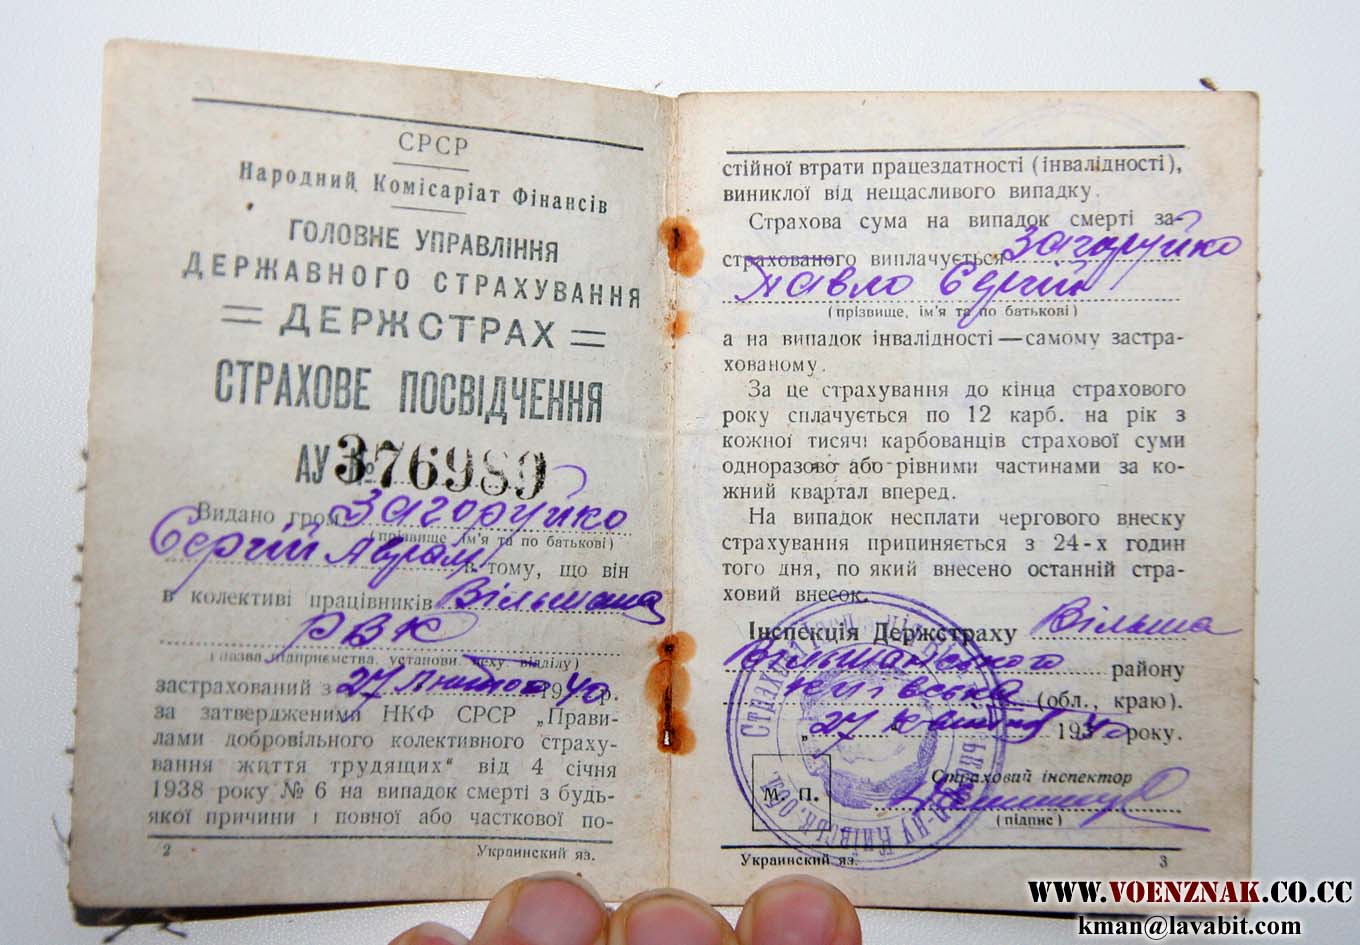 СРСР
Народний Комісаріат Фінансів
ГОЛОВНЕ УПРАВЛІННЯ
ДЕРЖАВНОГО СТРАХУВАННЯ
= ДЕРЖСТРАХ =
СТРАХОВЕ ПОСВІДЧЕННЯ
АУ № 376989
Видано гром. Загоруйко
(прізвище ім'я та по батькові)
Сергій Аврам в тому, що він
в колективі працівників Вільшана
РВК
(назва підприємства, установи цеху відділу)
застрахований з 27 лютого 1940 р.
за затвердженими НКФ СРСР „Прави-
лами добровільного колективного страху-
вання життя трудящих" від 4 січня
1938 року № 6 на випадок смерті з будь-
якої причини і повної або часткової по-
2 Украинский яз.
стійної втрати працездатності (інвалідності),
виниклої від нещасливого випадку.
Страхова сума на випадок смерті за-
страхованого виплачується Загоруйко
Павло Сергій
(прізвище, ім'я та по батькові)
а на випадок інвалідності—самому застра-
хованому.
За це страхування до кінця страхового
року сплачується по 12 карб. на рік з
кожної тисячі карбованців страхової суми
одноразово або рівними частинами за ко-
жний квартал вперед.
На випадок несплати чергового внеску
страхування припиняється з 24-х годин
того дня, по який внесено останній стра-
ховий внесок.
Інспекція Держстраху Вільша
Вільшанського району
Київська (обл., краю).
„27 1940 року.
Страховий інспектор
М. П.
(підпис)
Украинский яз. 3
WWW.VOENZNAK.CO.CC
kman@lavabit.com